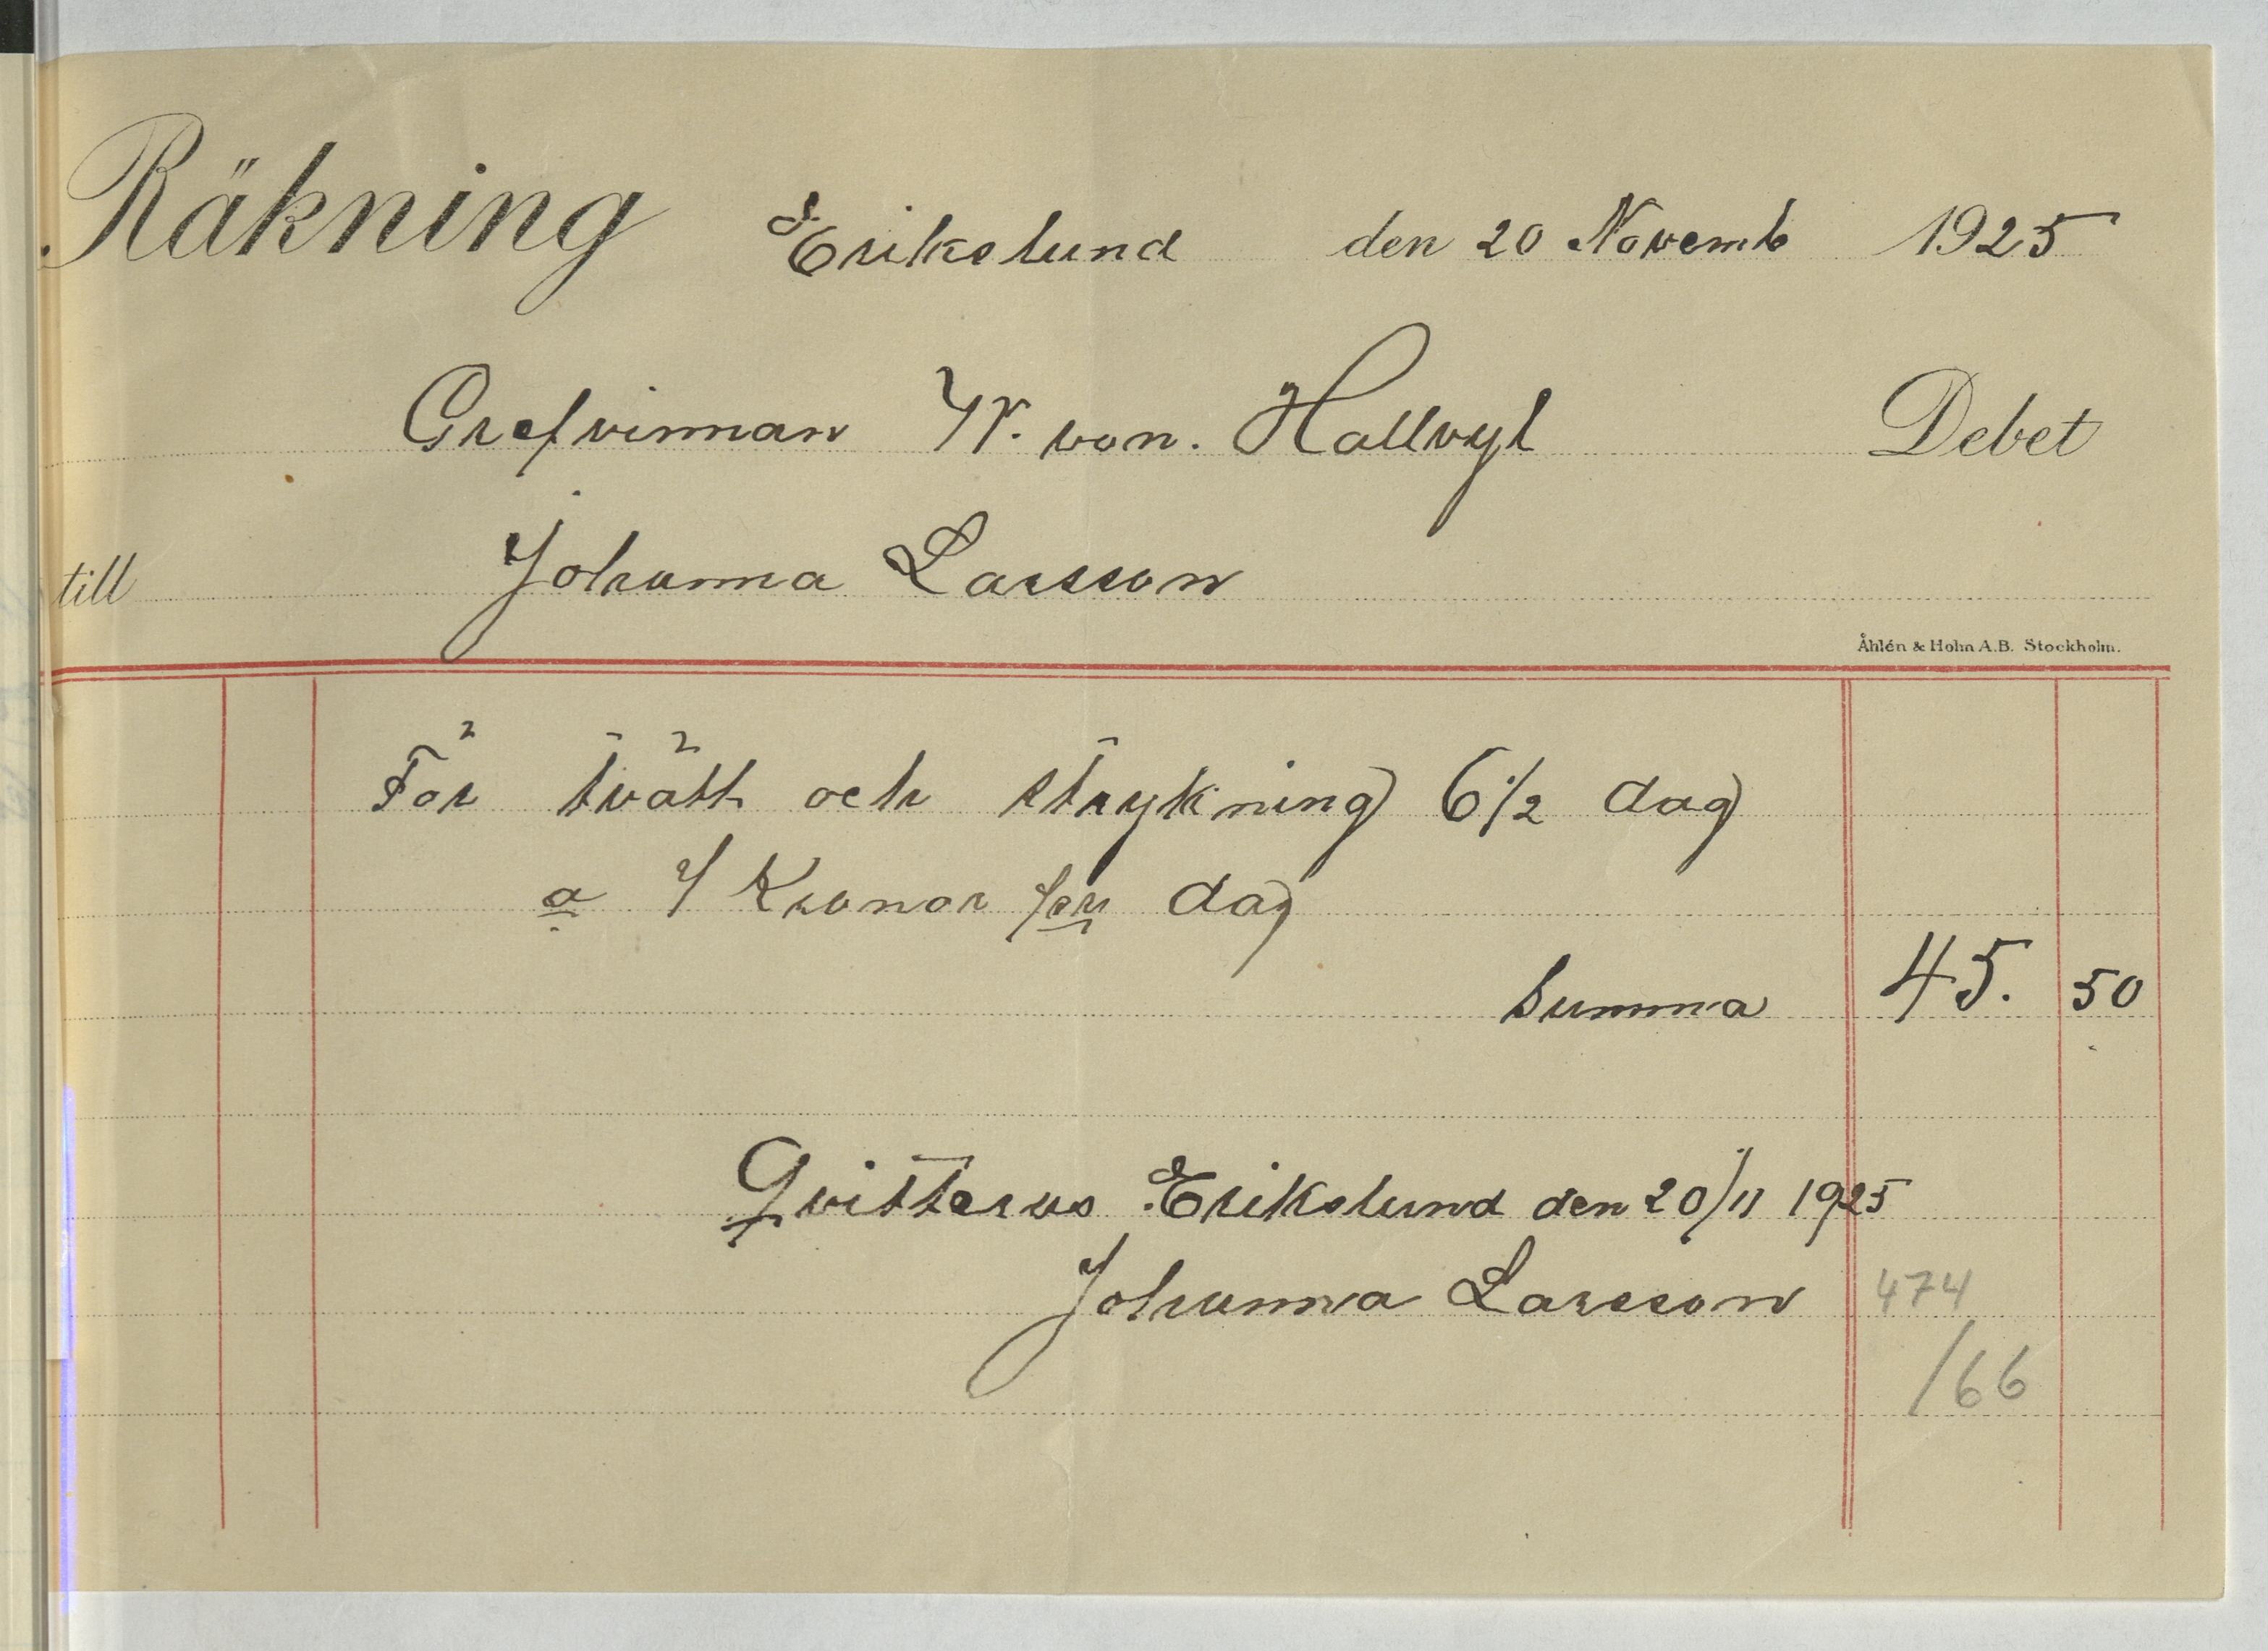 Räkning Erikslund den 20 Novemb 1925
Grefvinnan W. von. Hallvyl Debet
till Johanna Larsson
Åhlén & Holm A.B. Stockholm.
För tvätt och strykning 6 1/2 dag
a 7 Kronor per dag
Summa 45. 50
Qvitteras Erikslund den 20/11 1925
Johanna Larsson 474
/66